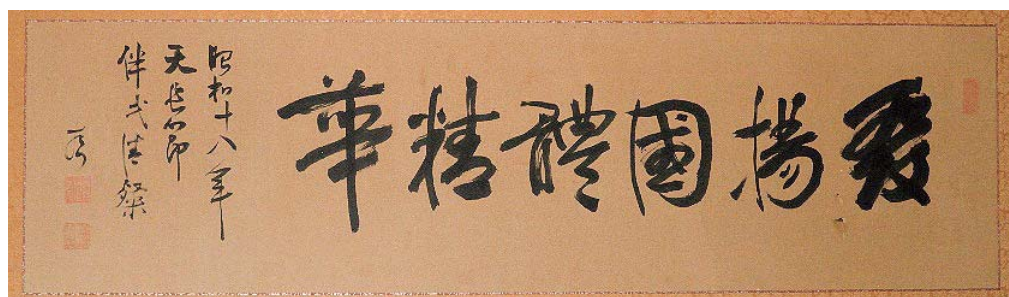 發揚國體精華
昭和十八年
天長節
伴氏清粲